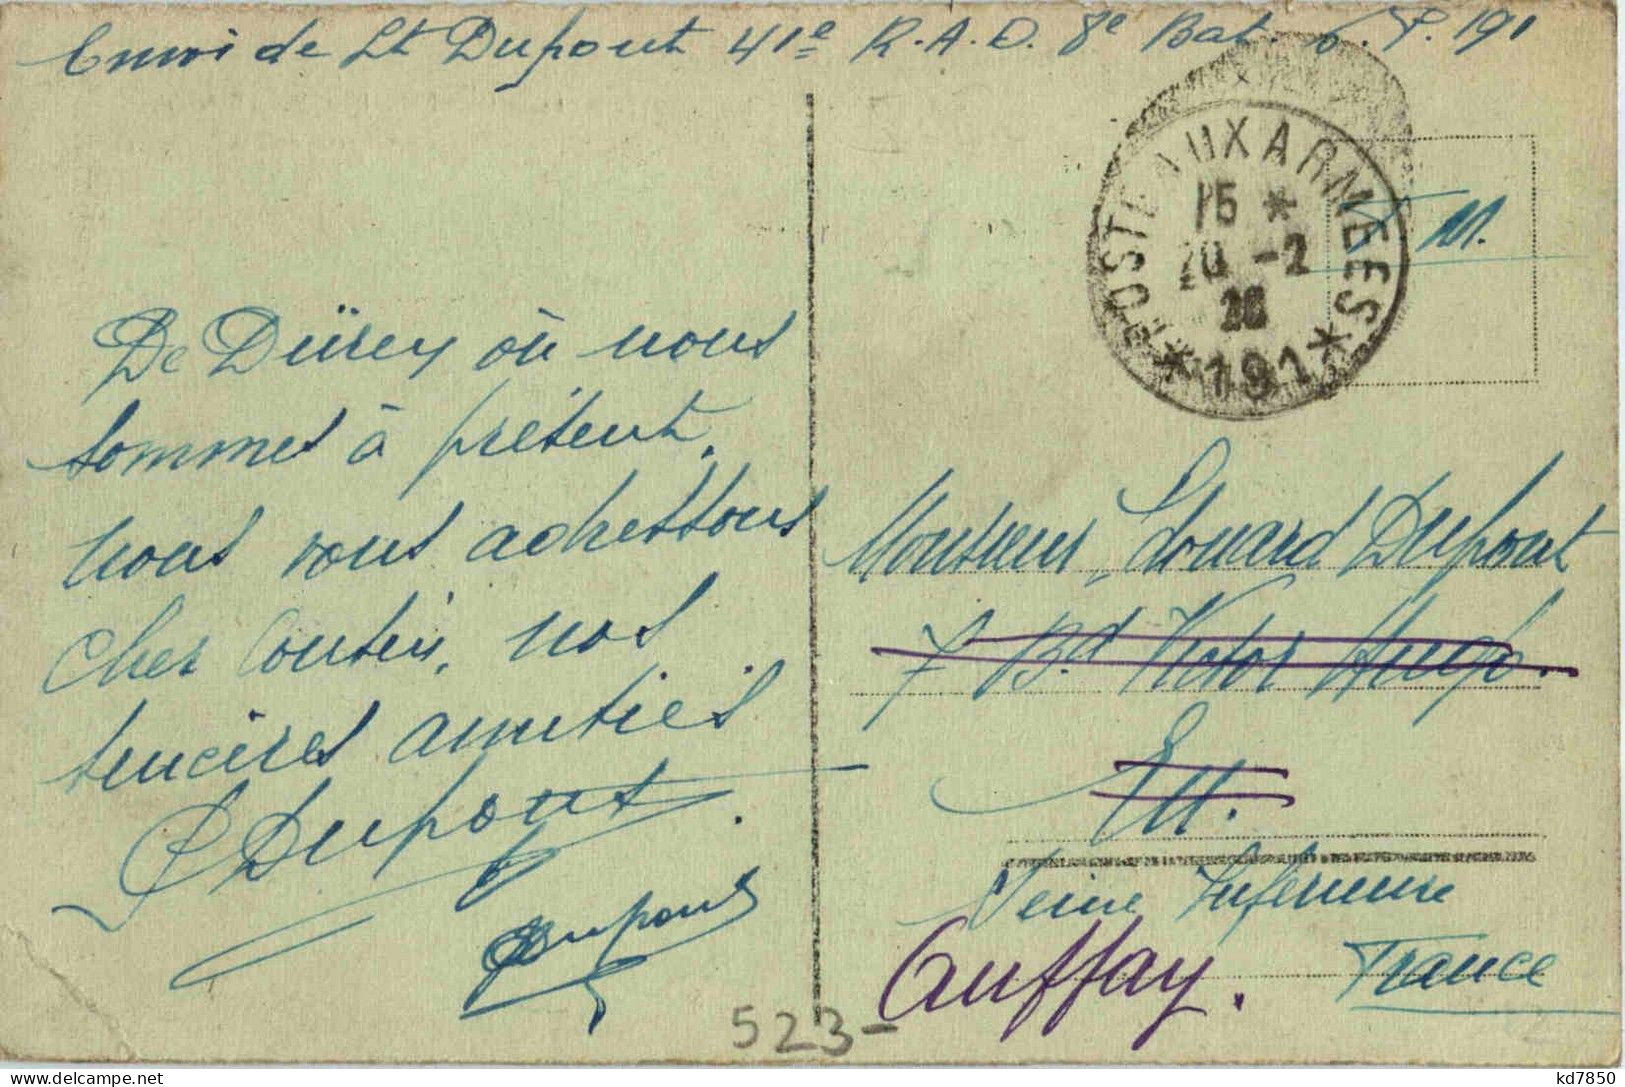 Envoi de Lt Dupont 41e R.A.D. 8e Bat. S.P. 191
POSTE AUX ARMÉES
15 *
20 -2
26
* 191 *
F.M.
De Düren où nous
sommes à présent.
nous vous adressons
cher cousin, nos
sincères amitiés
Dupont
Dupont
Monsieur Edouard Dupont
7 Bd Victor Hugo.
Eu.
Seine Inferieure
Auffay.
France
523-
kd7850